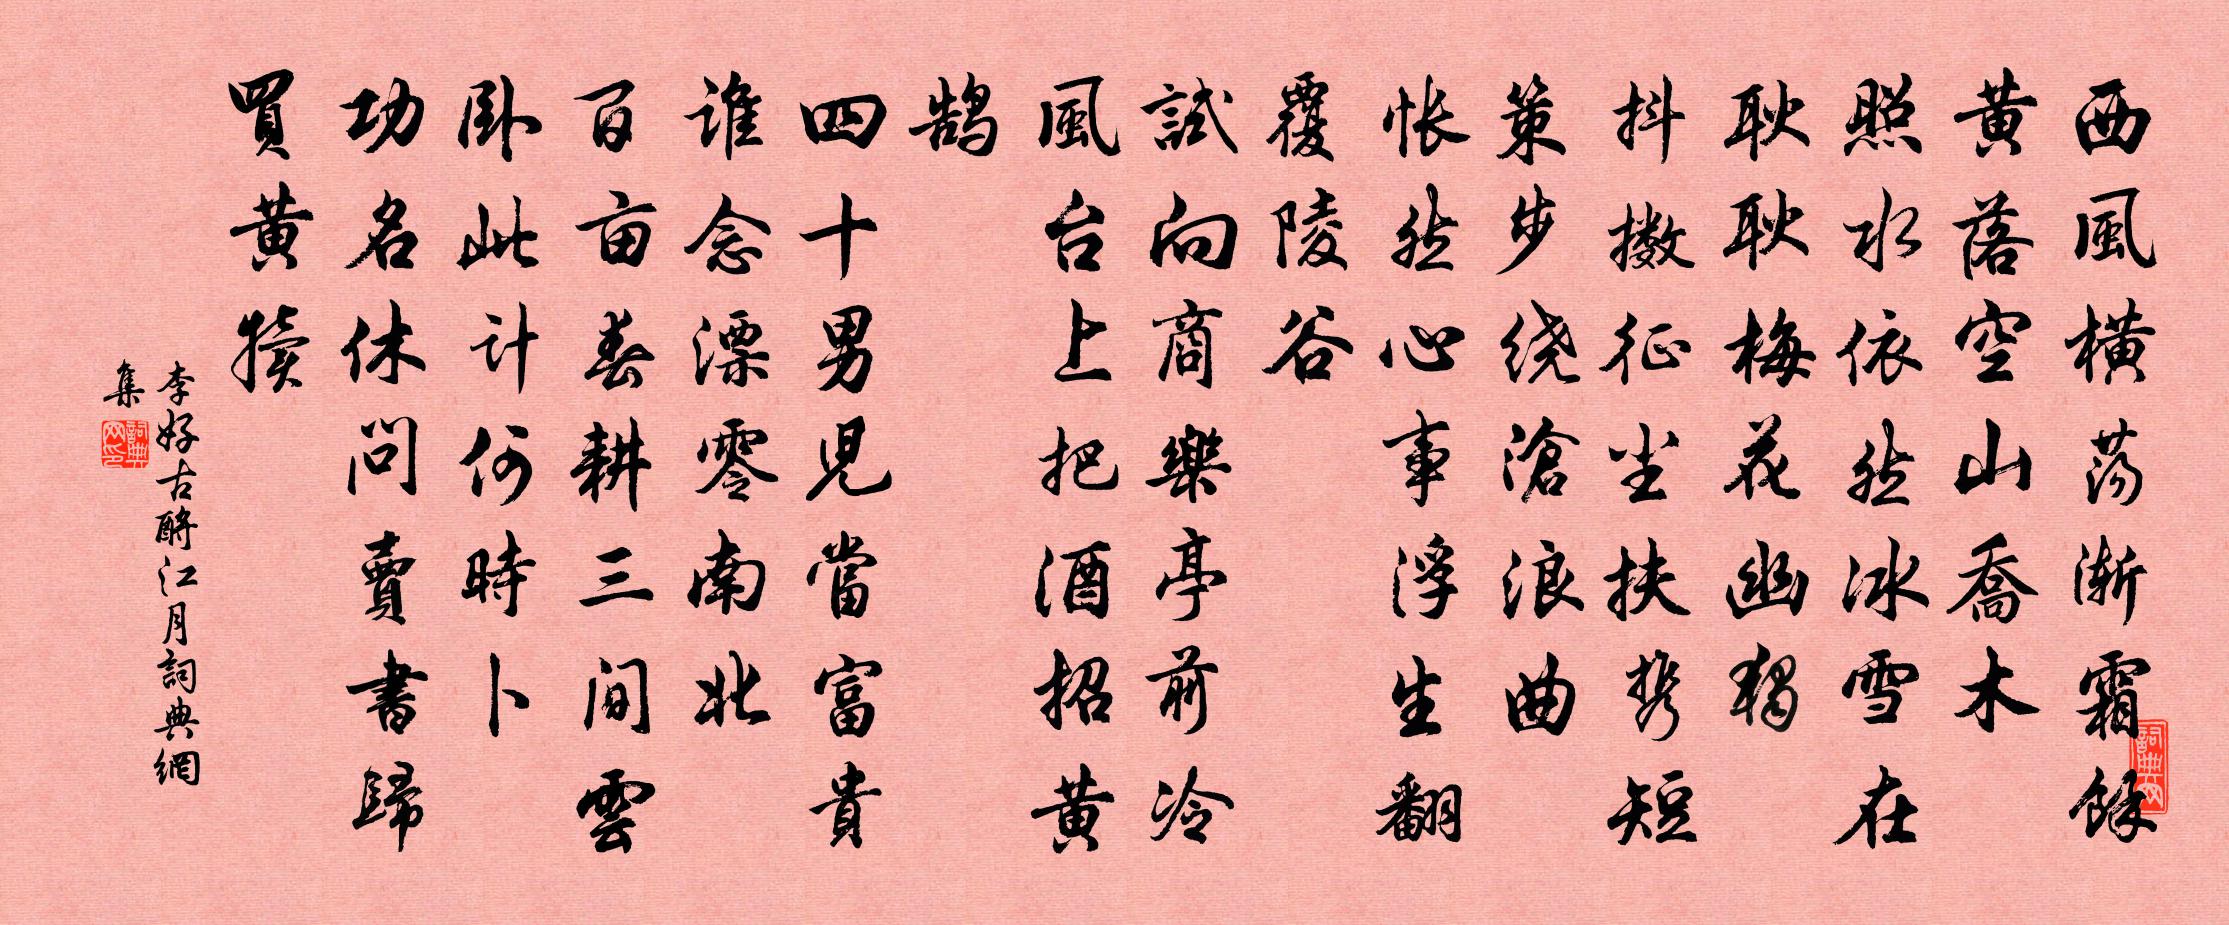 西風橫蕩漸霜餘
黃落空山喬木
照水依然冰雪在
耿耿梅花幽獨
抖擻征尘扶携短
策步绕滄浪曲
怅然心事浮生翻
覆陵谷
試向商樂亭前冷
風台上把酒招黃
鵠
四十男兒當富貴
谁念漂零南北
百亩春耕三间雲
卧此计何時卜
功名休問賣書歸
買黃犢
李好古酹江月詞典網
集
詞典網印
詞典網